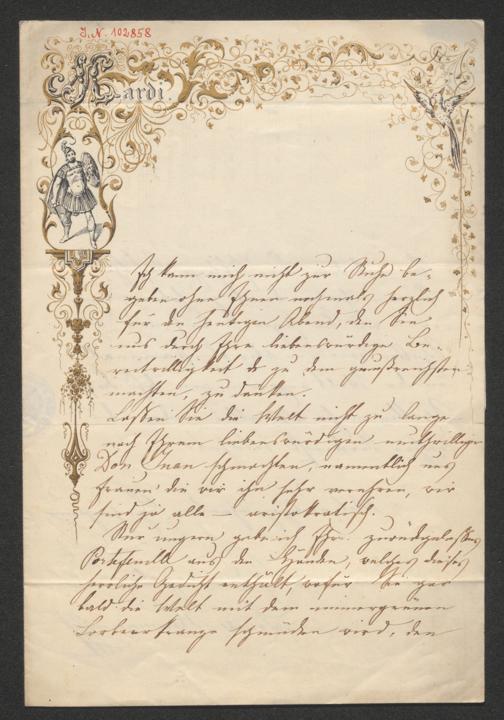 J. N. 102858
Mardi
Ich kann mich nicht zur Ruhe be-
geben ohne Ihnen nochmals herzlich
für den heutigen Abend, den Sie
uns durch Ihre liebenswürdige Be-
reitwilligkeit zu dem genußreichsten
machten, zu danken.
Laßen Sie die Welt nicht zu lange
nach Ihrem liebenswürdigen muthwilligen
Don Juan schmachten, namentlich uns
Frauen die wir ihn sehr verehren, wir
sind ja alle – aristokratisch.
Nur ungern gebe ich Ihr zurückgelaßenes
Portefeuille aus den Händen, welches dieses
herrliche Gedicht enthält, wofür Sie gar
bald die Welt mit dem immergrünen
Lorbeerkranze schmücken wird, den